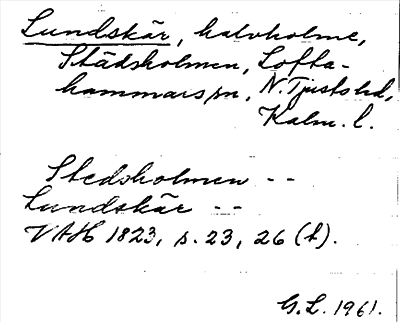 Lundskär, halvholme,
Städsholmen, Lofta-
hammars sn, N. Tjusts hd,
Kalm. l.
Stedsholmen --
Lundskär --
VAH 1823, s. 23, 26 (t).
G.L. 1961.